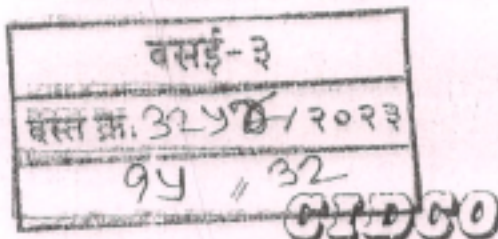 वसई-३
दस्त क्र. ३२५ / २०२३
१५ // ३२
CIDCO